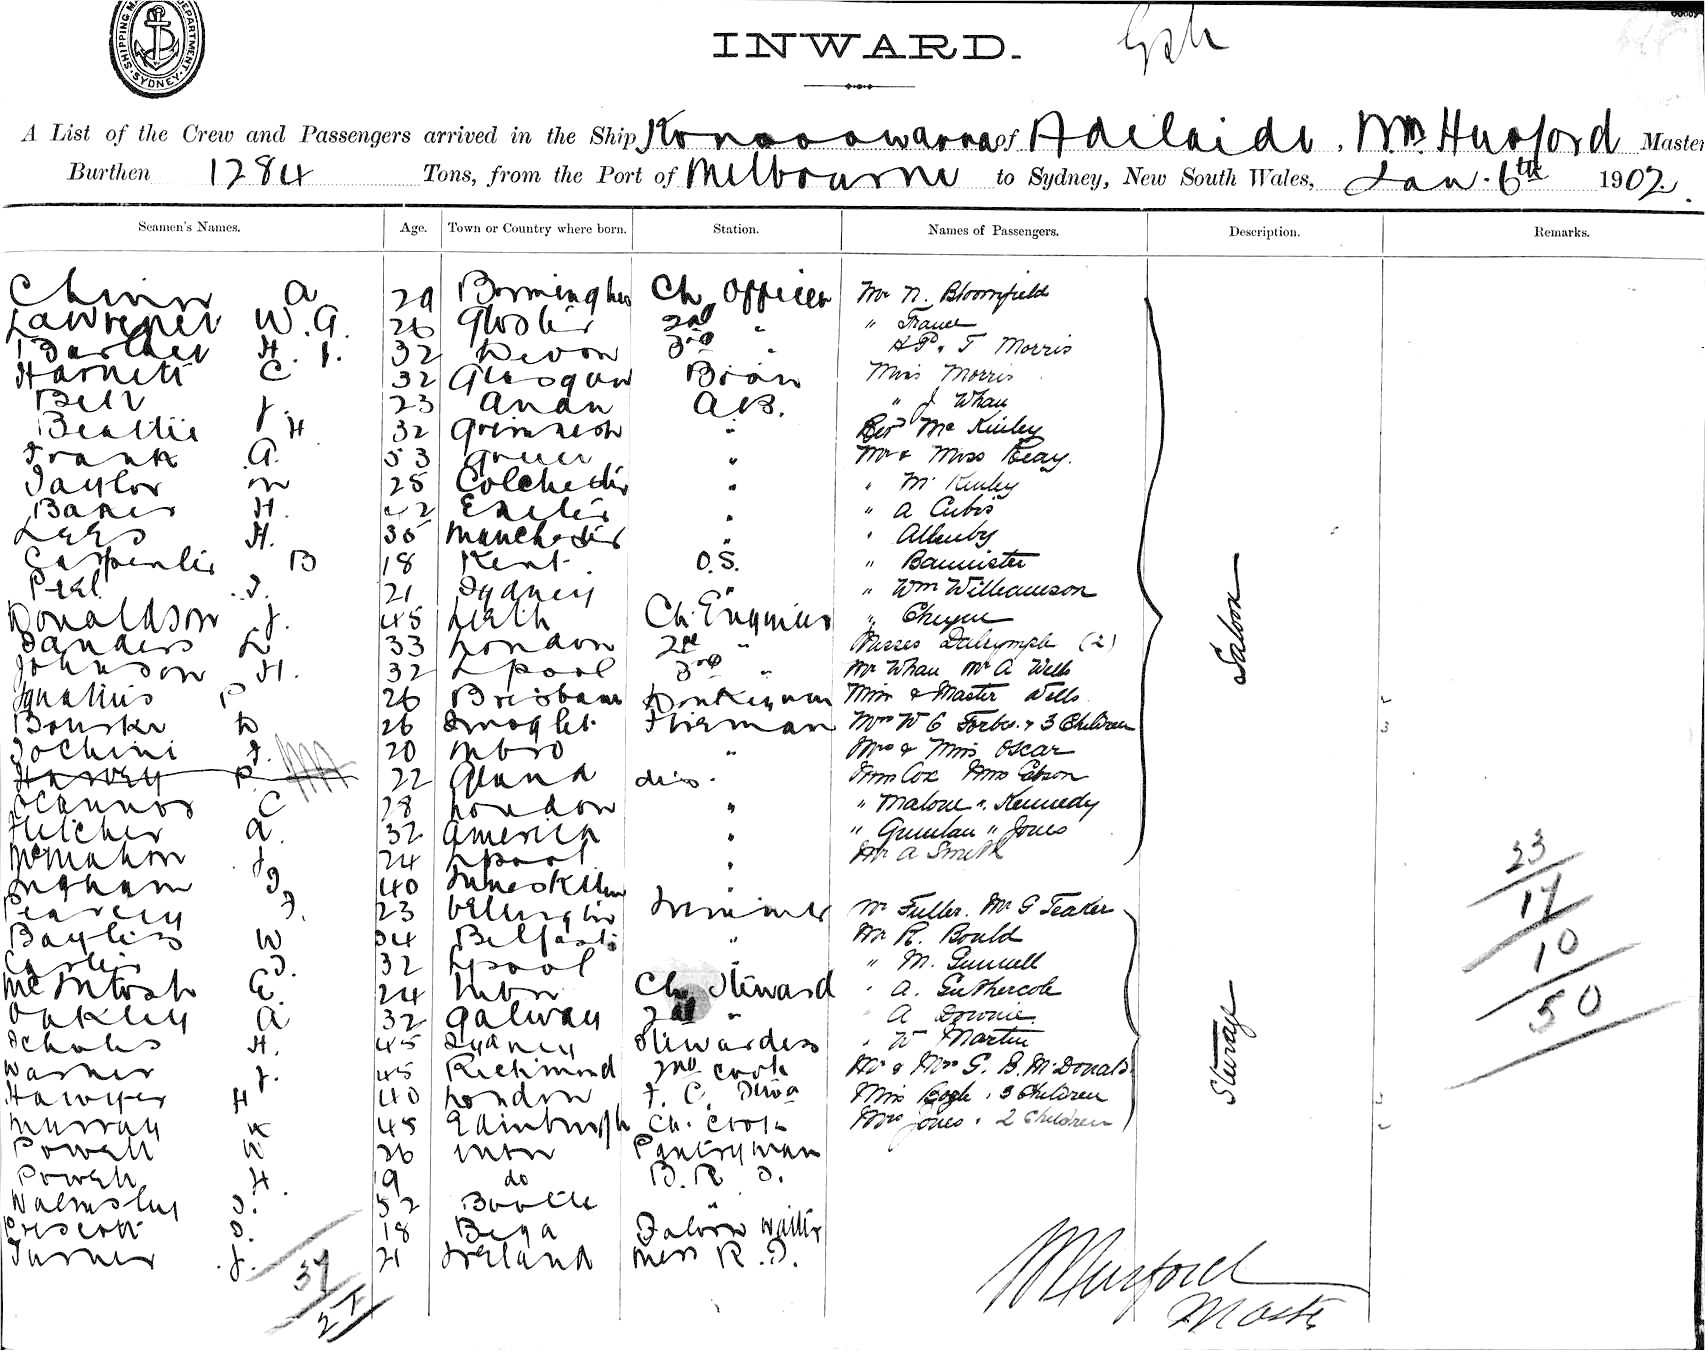 SHIPPING MASTER'S DEPARTMENT. SYDNEY
INWARD.
A List of the Crew and Passengers arrived in the Ship Konoowarra of Adelaide, Wm Hurford Master
Burthen 1284 Tons, from the Port of Melbourne to Sydney, New South Wales, Jan. 6th 1902.
Seamen's Names. Age. Town or Country where born. Station. Names of Passengers. Description. Remarks.
A 29 Ch. Officer Mr N. Bloomfield
W. G. 26 2nd "
H. J. 32 Devon 3rd " T Morris
Harnett C 32 Glasgow Miss Morris
Bell J. 23 A.B. " J Whan
Beattie J H 32 " Revd Mc Kinley
Frank A. 53 " Mr & Miss Reay.
Taylor M 25 Colchester " " Mc Kinley
Baker H. 42 Exeter " " A Cubis
Lees H. " Allenby
Manchester "
Carpenter B 18 Kent. O.S. " Bannister
Peel J. 21 Sydney " " Wm Williamson
Donaldson J. 45 Leith Ch. Engineer " Cheyne
Sanders L 33 London 2nd " Misses Dalrymple (2)
Johnson H. 32 Lpool 3rd " Mr Whan Mr A Wells
Ignatius P 26 Brisbane Donkeyman Miss & Master Wells
Bourke D 26 Fireman Mrs W G Forbes & 3 Children
Jochini J. 20 Mbro " Mrs & Miss Oscar
Harvey P. 22 Miss Cox Miss Gibson
OConnor C 28 London " " Malone " Kennedy
Fletcher A. 32 America " " Quinlan " Jones
McMahon J. 24 Lpool " Mr A Smith
Saloon
Ingham J 40 "
Pearcey J. 23 Wellington Trimmer Mr Fuller. Mr G Teaker
Bayliss W 34 Belfast " Mr R. Bould
J. 32 Lpool " " M. Gunnell
McIntosh E. 24 Mbrn Ch. Steward " A. Guthercole
Oakley A 32 Galway 2nd " A Downie
Scholes H. 45 Sydney Stewardess " W Martin
Warner J. 45 Richmond 2nd Cook Mr & Mrs G. B. McDonald
Hawyes H 40 London F. C. Mrs & 3 Children
Murray 48 Edinburgh Ch. Cook Mrs Jones & 2 Children
Steerage
Powell 26 Mbrn Pantryman
Powell H. 19 do B. R. S.
Walmsley J. 52 Bootle "
Prescott S. 18 Bega Saloon Waiter
Turner J. 21 Ireland Mess R. S.
37
21
23
17
10
50
W Hurford
Master